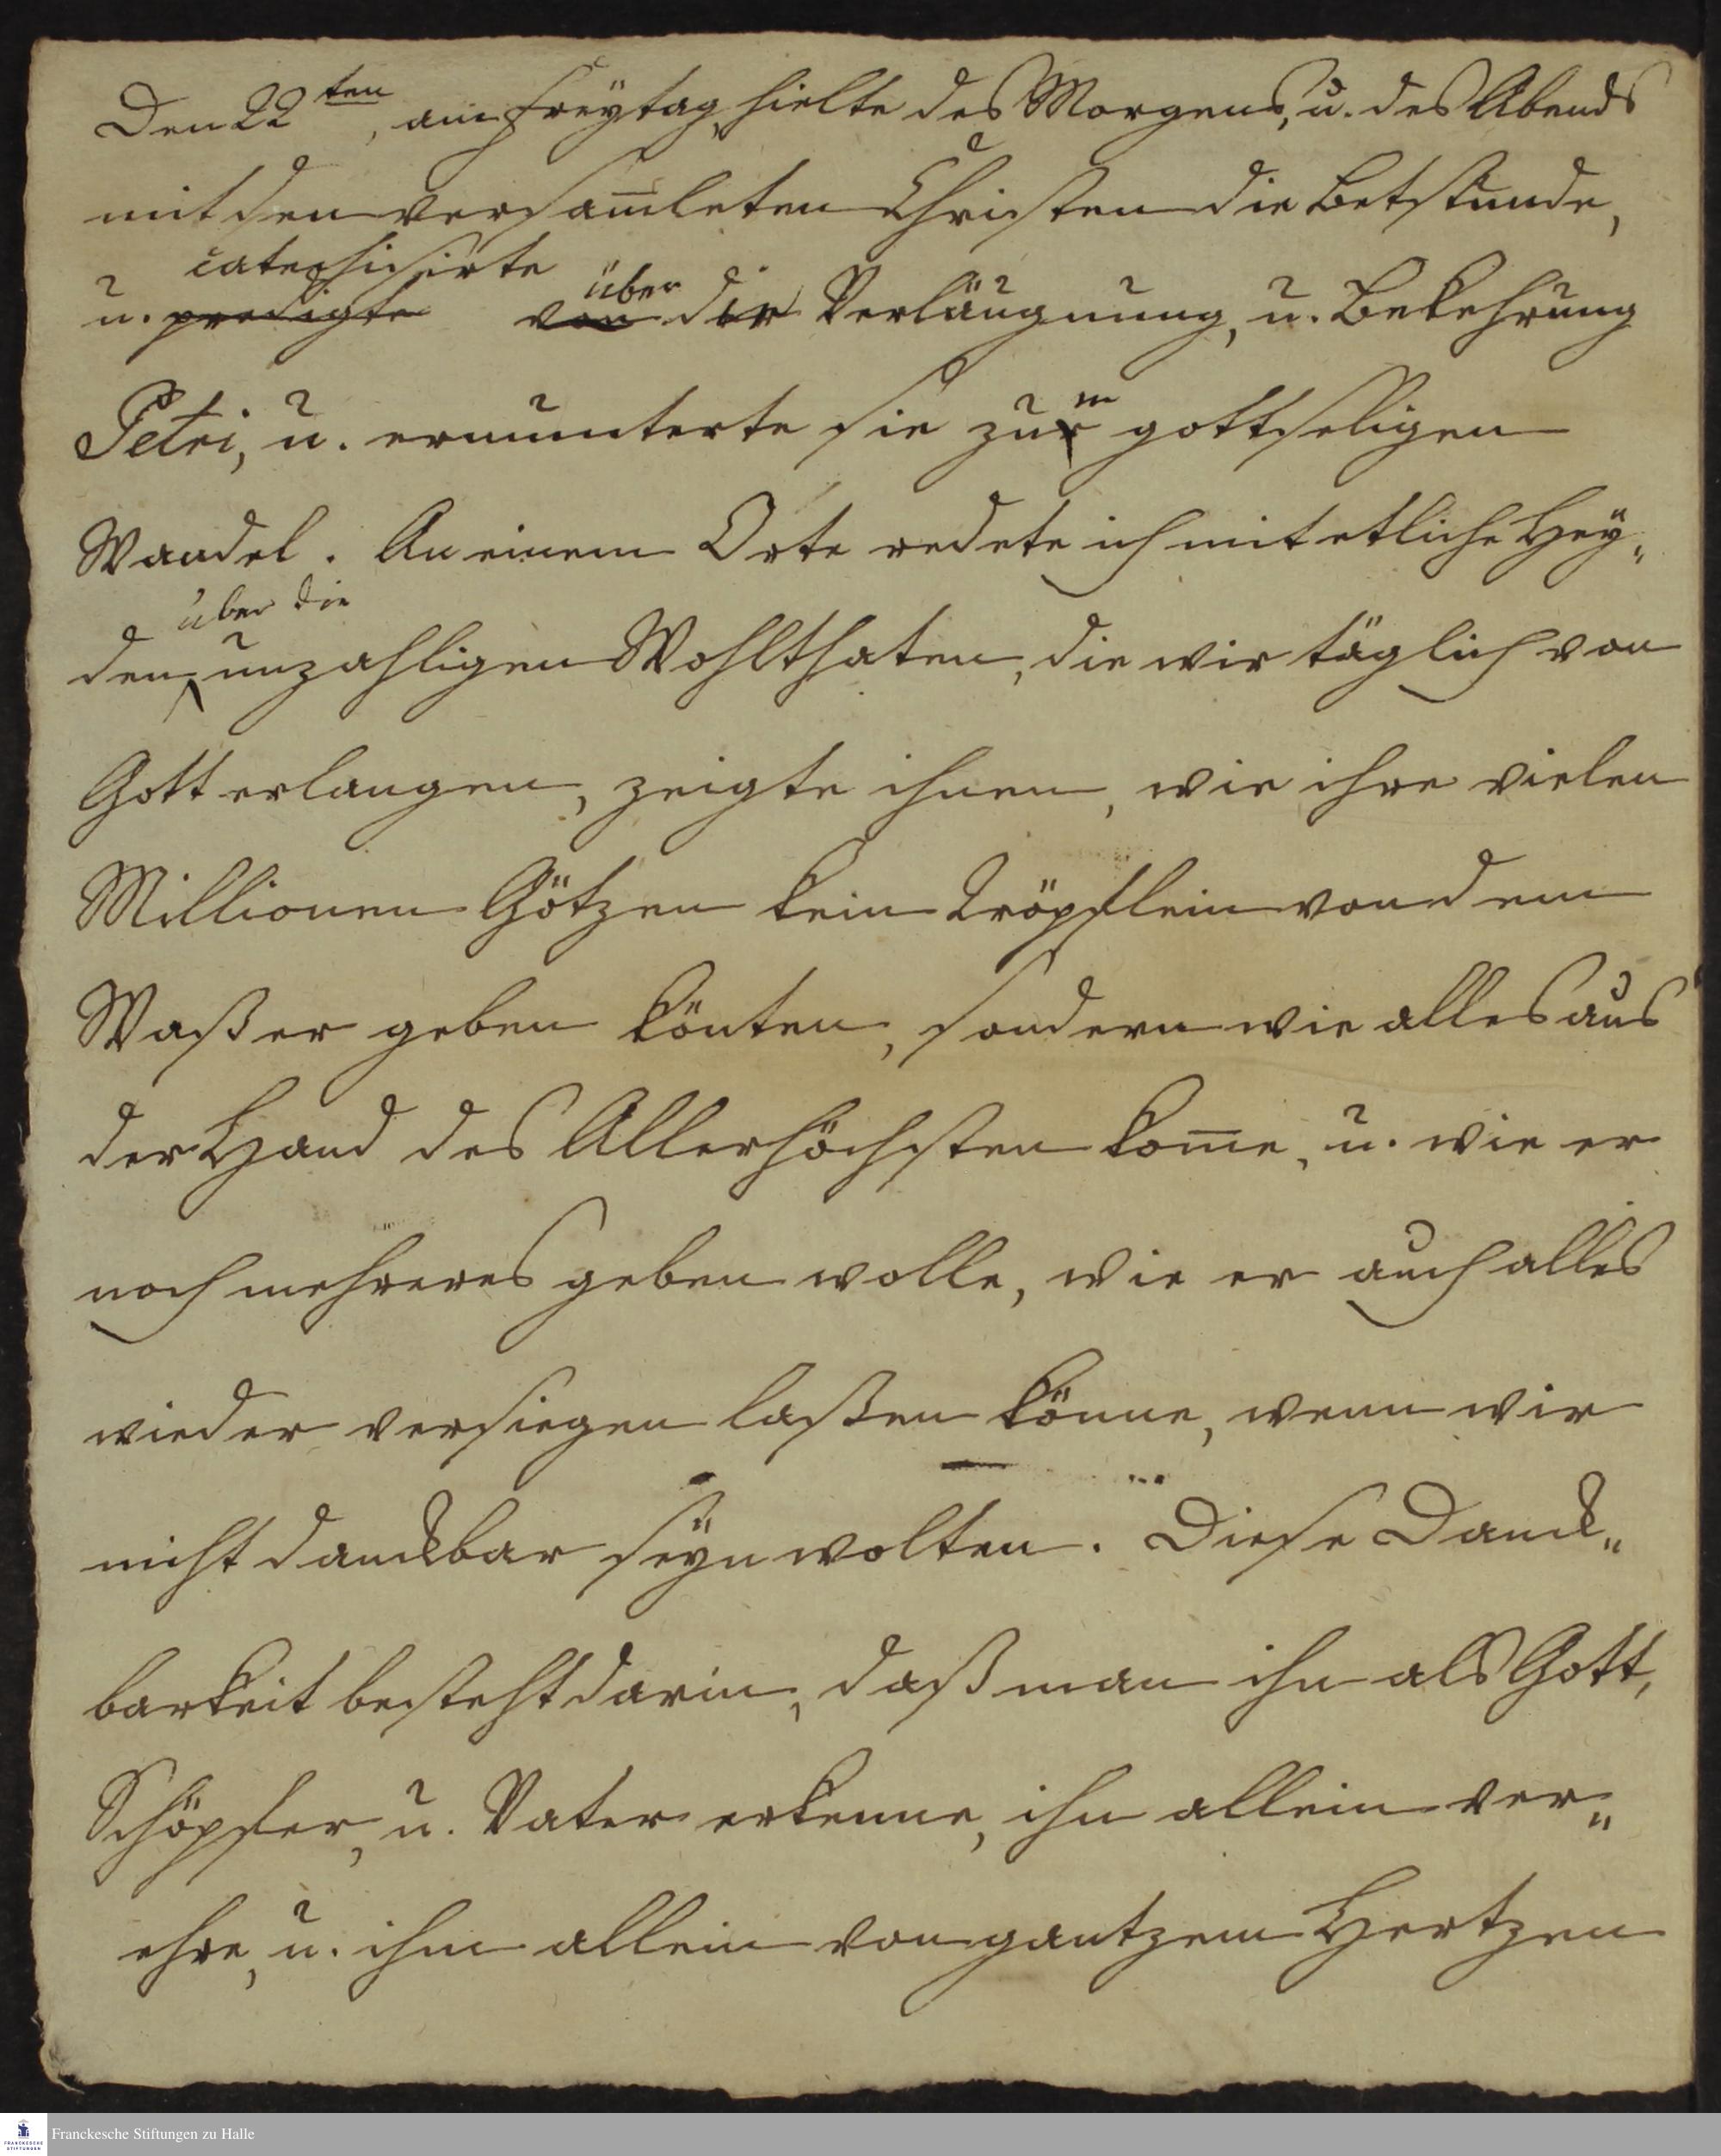 Den 22ten, am Freytag, hielte des Morgens, u. des Abends
mit den versam̅leten Christen die Betstunde,
catechisirte über
u. predigte von der Verläugnung, u. Bekehrung
Petri, u. ermunterte sie zum gottseligen
Wandel. An einem Orte redete ich mit etliche Hey„
über die
den, unzahligen Wohlthaten, die wir täglich von
Gott erlangen, zeigte ihnen, wie ihre vielen
Millionen Götzen kein Tröpflein von dem
Waßer geben könten, sondern wie alles aus
der Hand des Allerhöchsten kom̅e, u. wie er
noch mehreres geben wolle, wie er auch alles
wieder versiegen laßen könne, wenn wir
nicht danckbar seyn wolten. Diese Danck„
barkeit besteht darin, daß man ihn als Gott,
Schöpfer, u. Vater erkenne, ihn allein ver„
ehre, u. ihm allein von gantzem Hertzen
Franckesche Stiftungen zu Halle